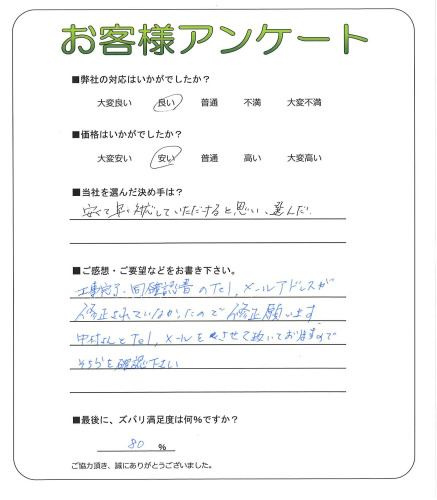 お客様アンケート
■弊社の対応はいかがでしたか?
大変良い 良い 普通 不満 大変不満
■価格はいかがでしたか?
大変安い 安い 普通 高い 大変高い
■当社を選んだ決め手は?
安くて早い対応していただけると思い、選んだ。
■ご感想・ご要望などをお書き下さい。
工事完了 回確認書のTel,メールアドレスが
修正されていなかったので修正願います
中村さんとTel,メールをさせて頂いておりますので
そちらを確認下さい
■最後に、ズバリ満足度は何%ですか?
80 %
ご協力頂き、誠にありがとうございました。